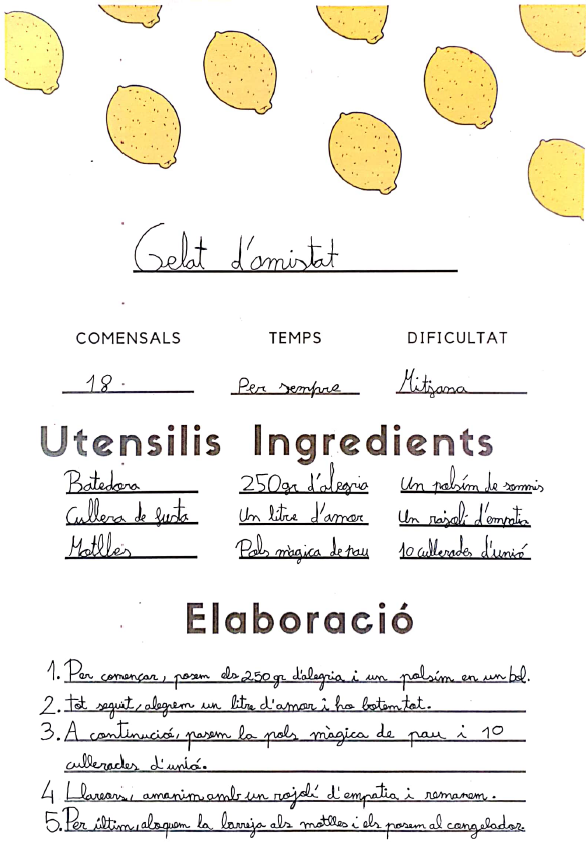 Gelat d'amistat
COMENSALS TEMPS DIFICULTAT
18 Per sempre Mitjana
Utensilis Ingredients
Batedora 250gr d'alegria Un polsim de somnis
Cullera de fusta Un litre d'amor Un rajolí d'empatia
Motlles Pols màgica de pau 10 cullerades d'unió
Elaboració
1. Per començar, posem els 250gr d'alegria i un polsím en un bol.
2. tot seguit, afegrem un litre d'amor i ho batem tot.
3. A continuació, posem la pols màgica de pau i 10
cullerades d'unió.
4 Llavors, amanim amb un rajolí d'empatia i remanem.
5. Per últim, aboquem la barreja als motlles i els posem al congelador.